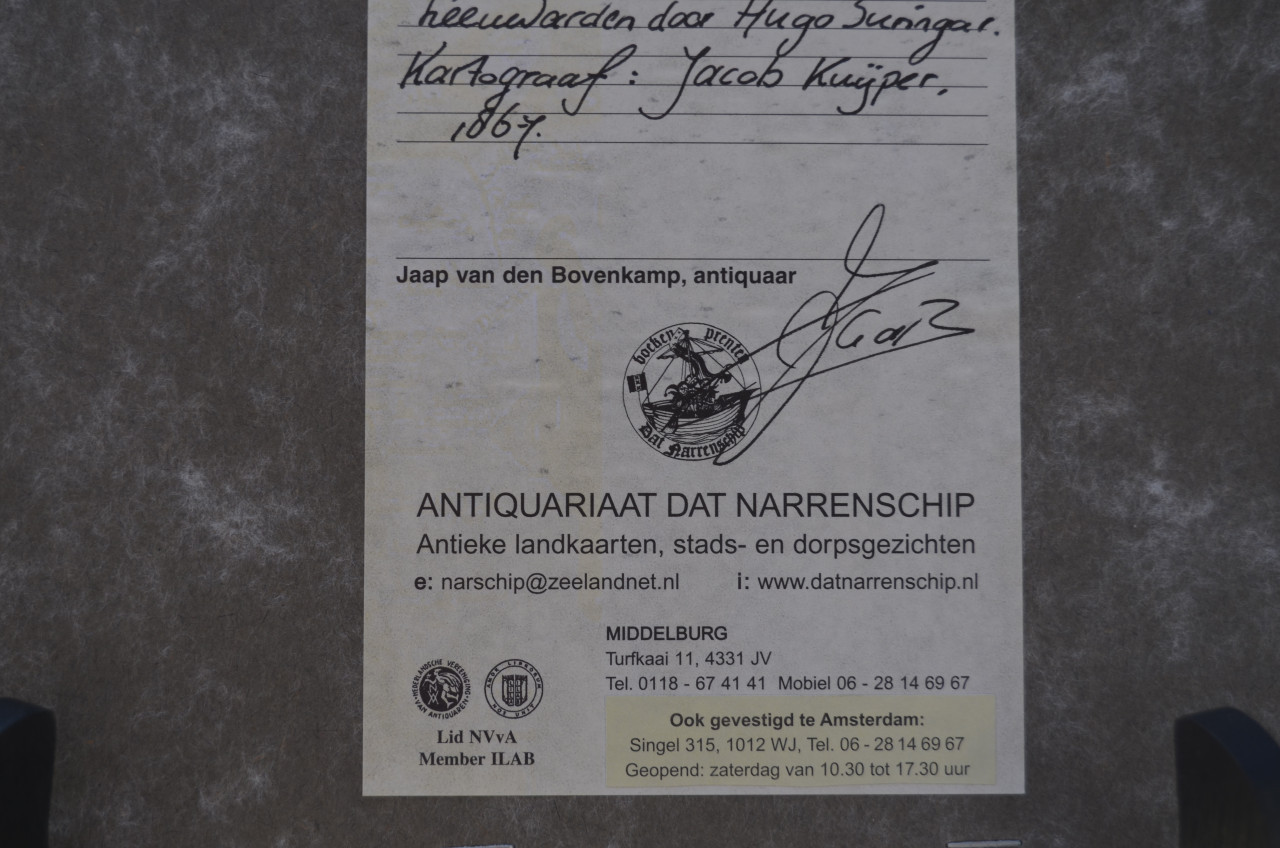 Leeuwarden door Hugo Suringar.
Kartograaf : Jacob Kuÿper.
1867.
Jaap van den Bovenkamp, antiquaar
boeken prenten
Dat Narrenschip
ANTIQUARIAAT DAT NARRENSCHIP
Antieke landkaarten, stads- en dorpsgezichten
e: narschip@zeelandnet.nl i: www.datnarrenschip.nl
MIDDELBURG
Turfkaai 11, 4331 JV
Tel. 0118 - 67 41 41 Mobiel 06 - 28 14 69 67
NEDERLANDSCHE VEREENIGING VAN ANTIQUAREN
AMOR LIBRORUM NOS UNIT
Lid NVvA
Member ILAB
Ook gevestigd te Amsterdam:
Singel 315, 1012 WJ, Tel. 06 - 28 14 69 67
Geopend: zaterdag van 10.30 tot 17.30 uur